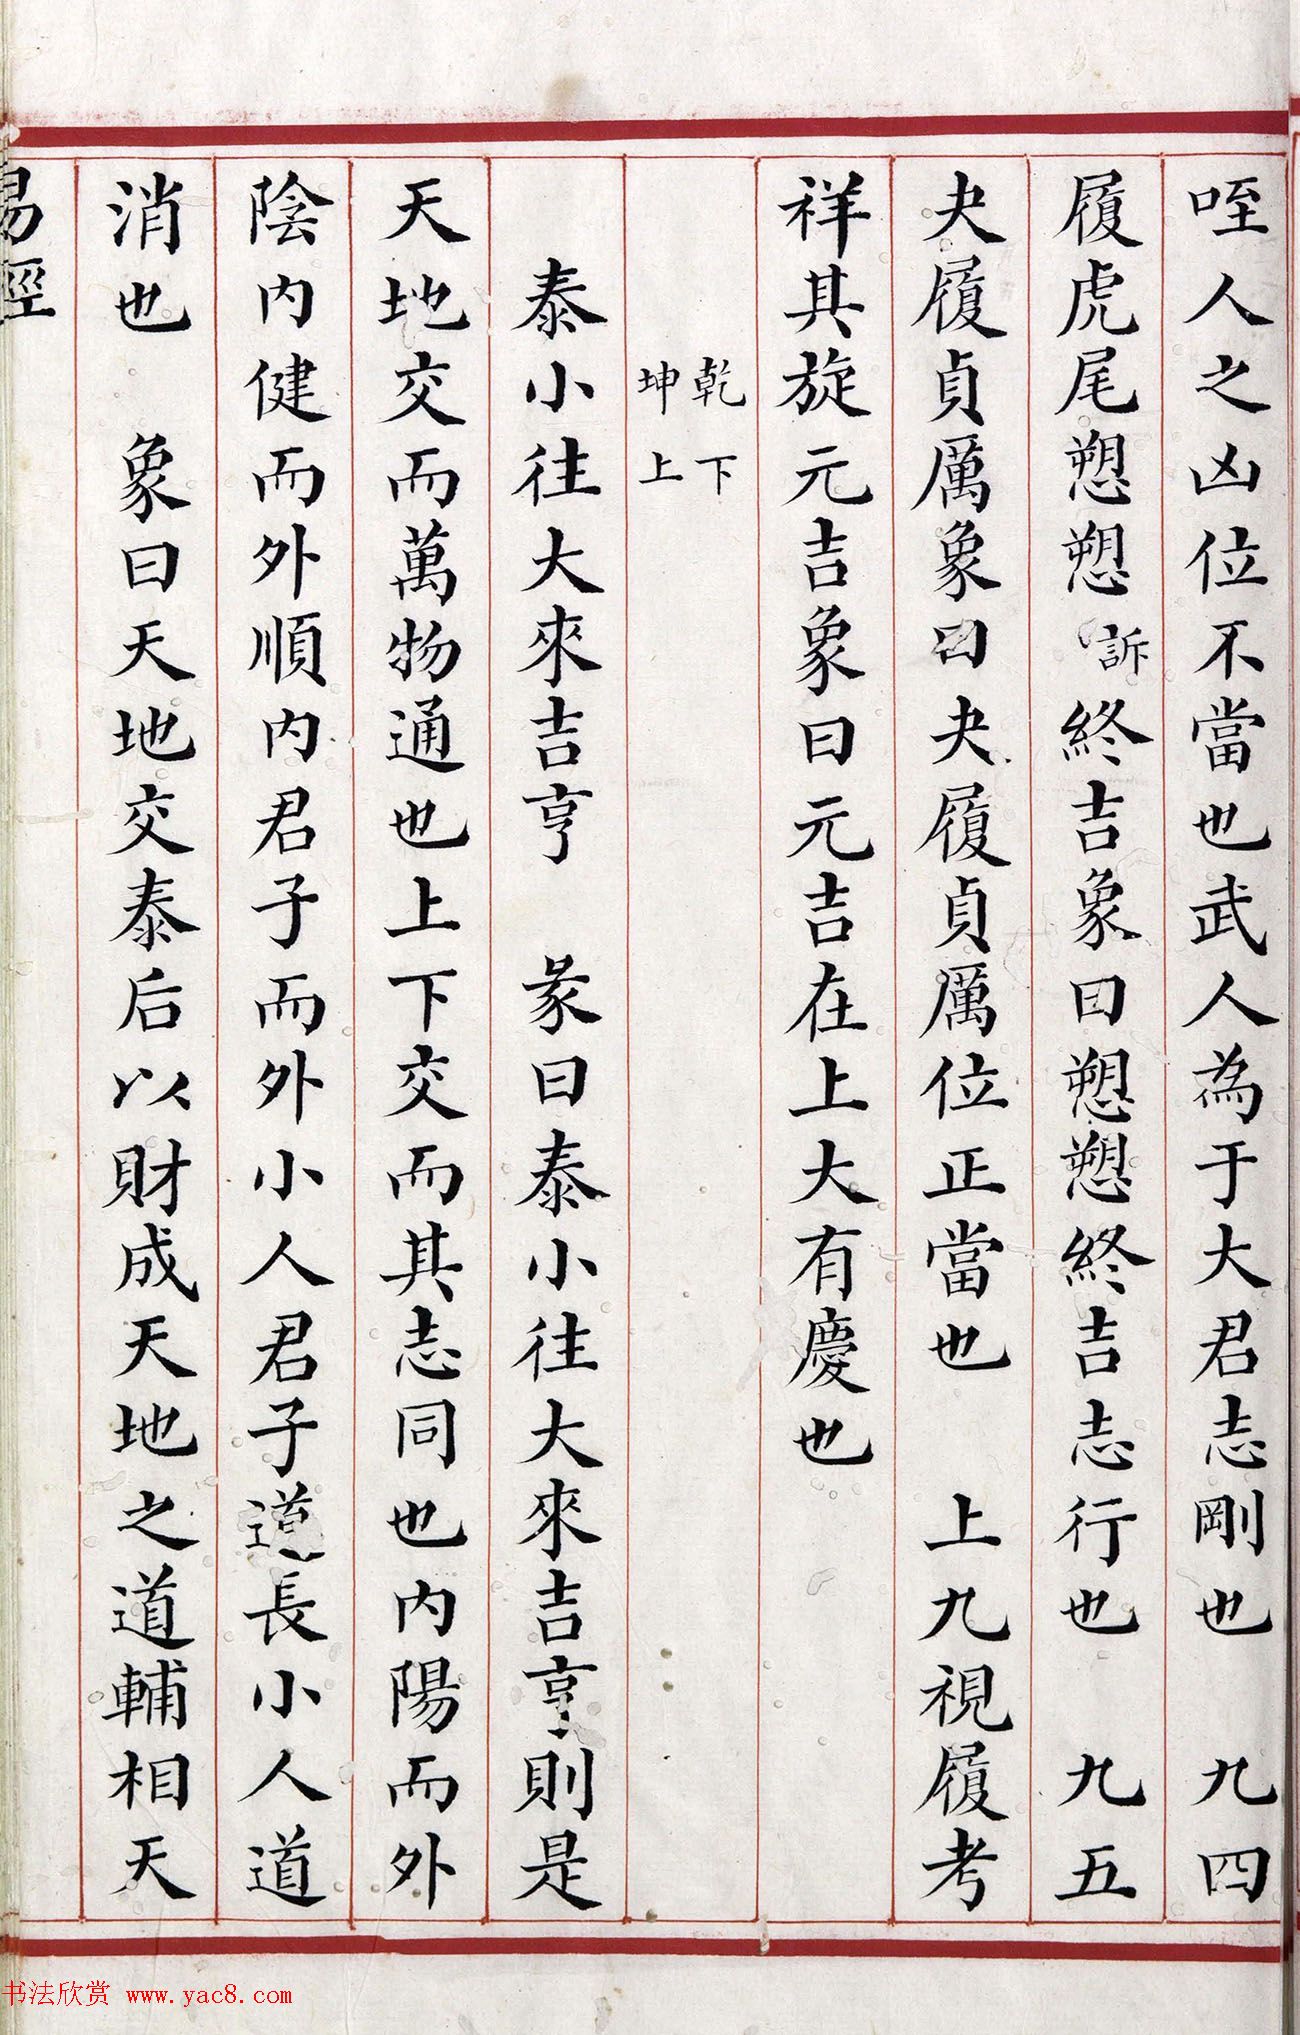 咥人之凶位不當也武人為于大君志剛也　九四
履虎尾愬愬訴終吉象曰愬愬終吉志行也　九五
夬履貞厲象曰夬履貞厲位正當也　上九視履考
祥其旋元吉象曰元吉在上大有慶也
乾下
坤上
泰小往大來吉亨　彖曰泰小往大來吉亨則是
天地交而萬物通也上下交而其志同也內陽而外
陰內健而外順內君子而外小人君子道長小人道
消也　象曰天地交泰后以財成天地之道輔相天
易經
书法欣赏 www.yac8.com